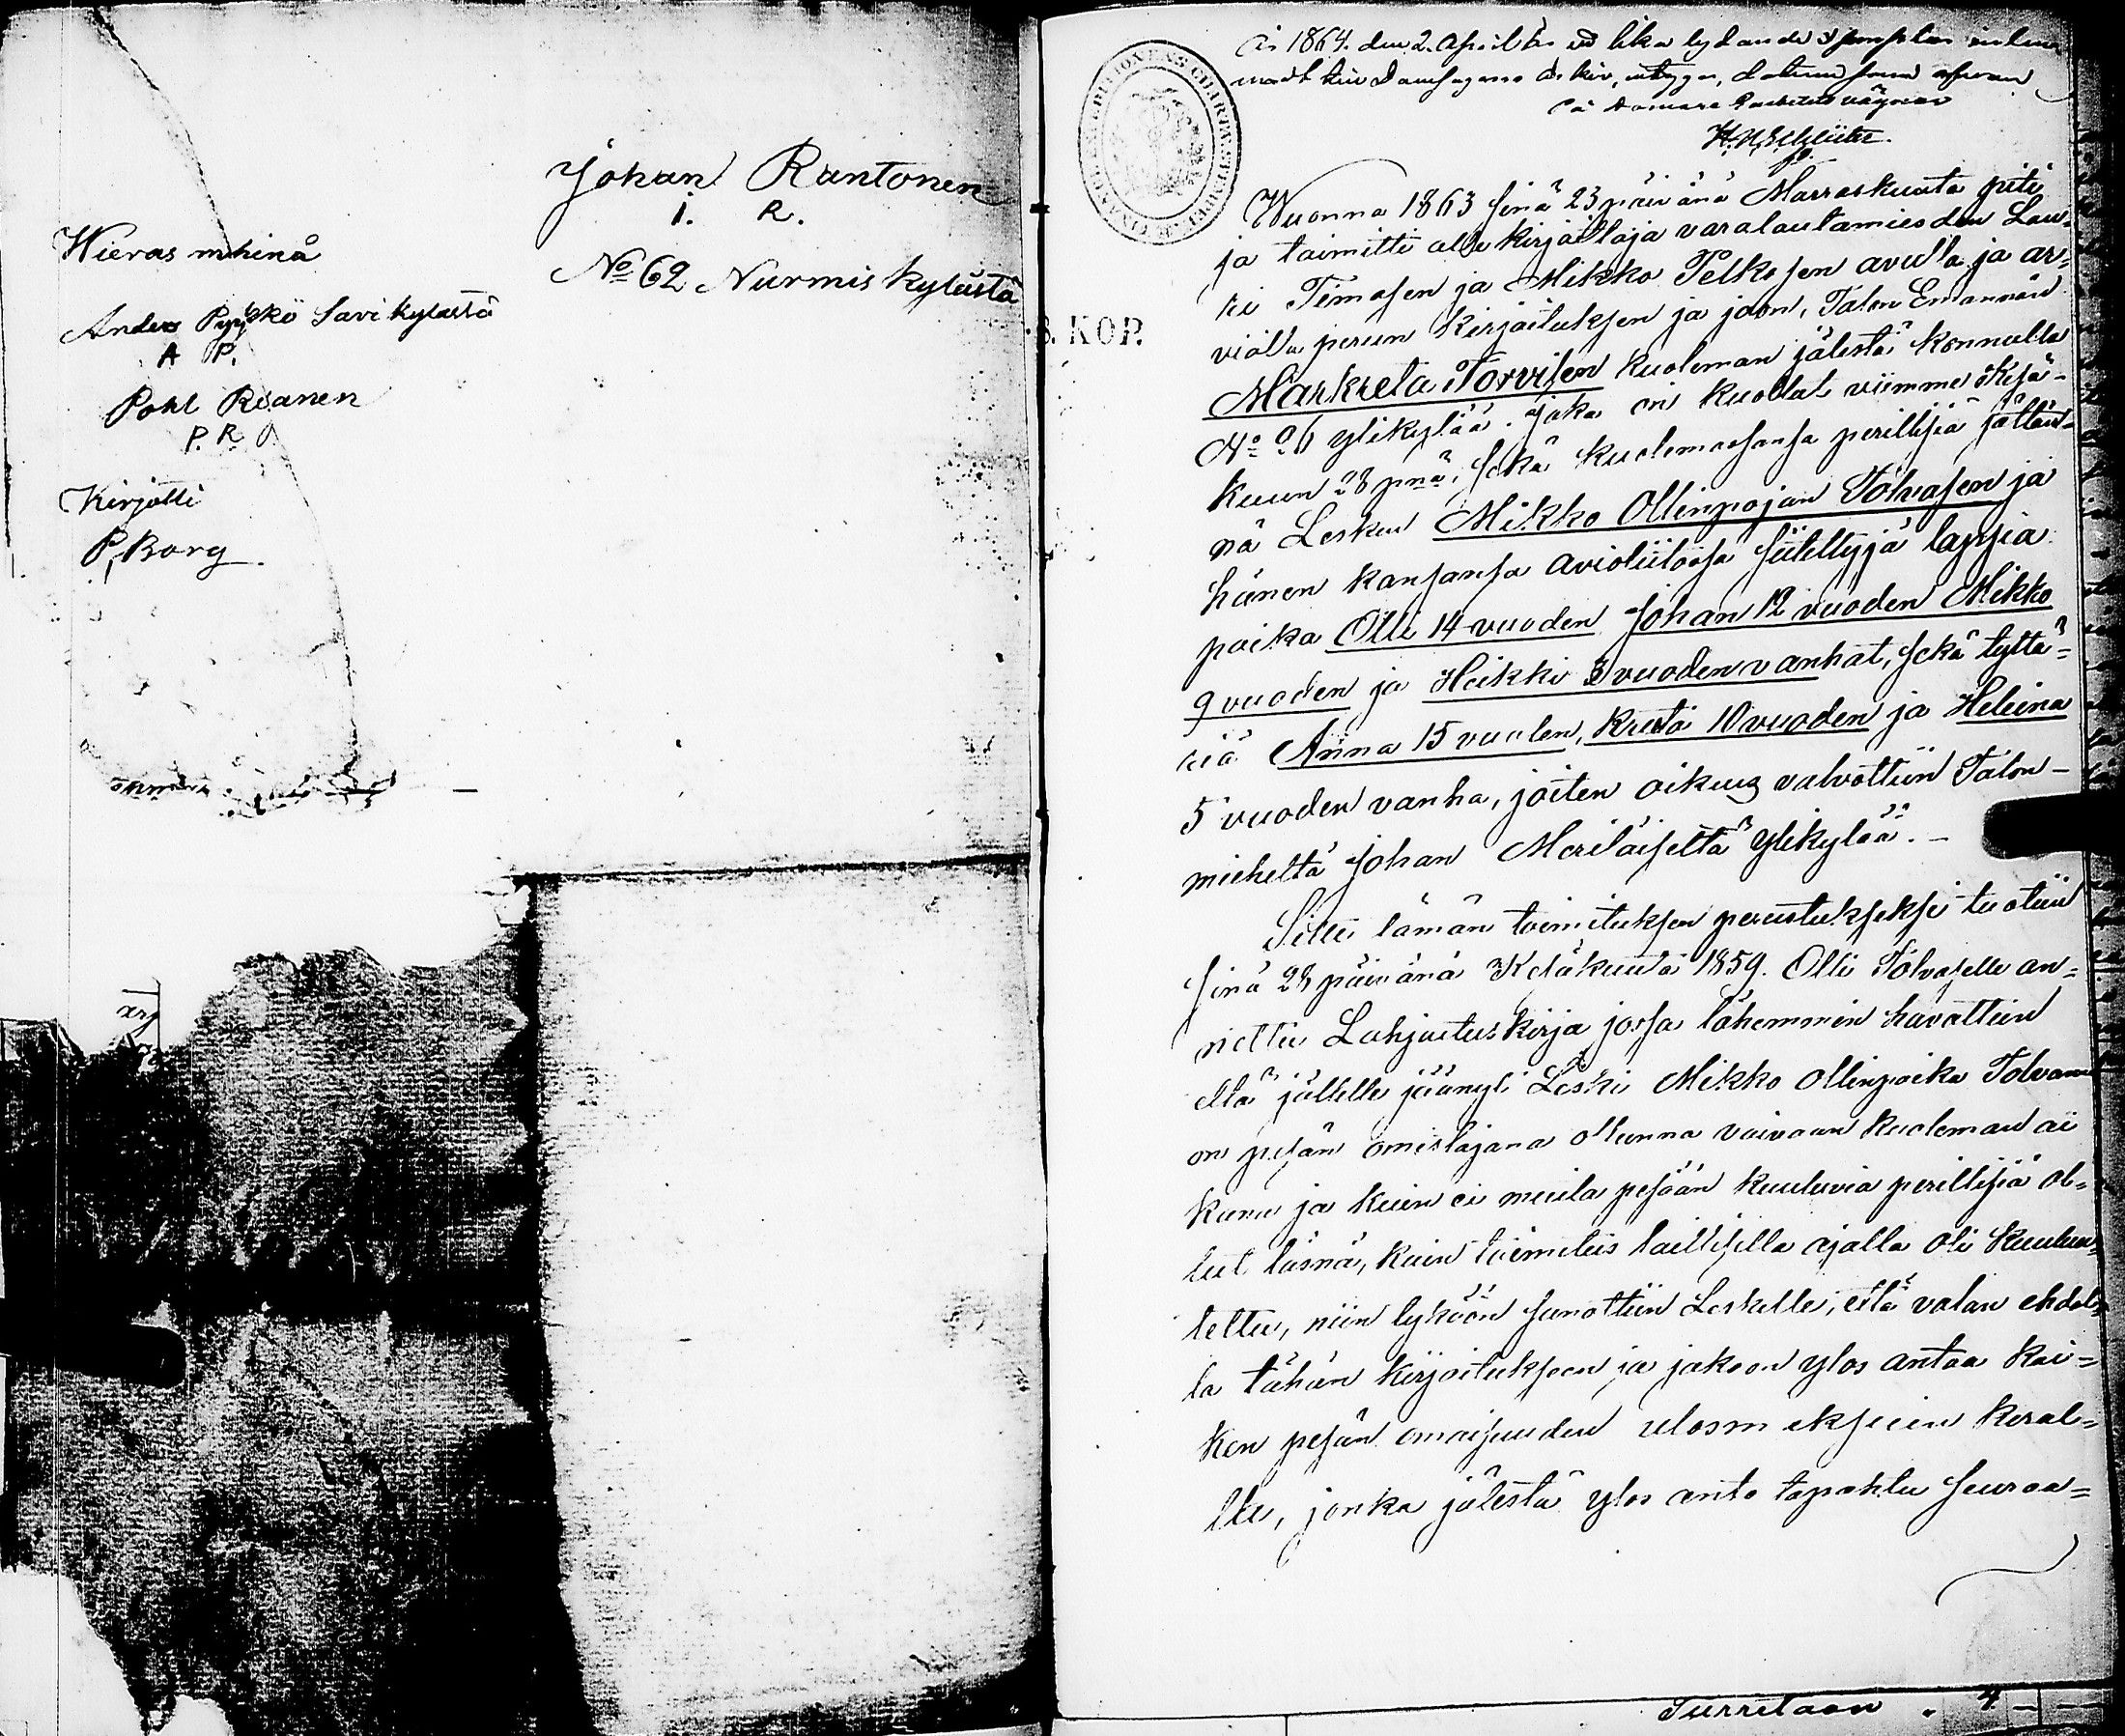 Johan Rantonen
I. R.
No 62 Nurmis kylästä
Wieras mihinä
Anders Pyykkö Savikylästä
A P.
Pohl Rianen
P. R
Kirjotti
P, Borg
År 1864. den 2. April är ett lika lydande
H. M. Schlüter
8. KOP.
Wuonna 1863 sinä 23 päivänä Marraskuuta piti
ja toimitti alle kirjoittaja varalautamiesden Lau-
ri Timosen ja Mikko Pelkosen avulla ja ar-
violla perun kirjoituksen ja jaon, Talon Emännän
Markreta Torvisen kuoleman jälestä konnulla
No 26 ylikylää. joka on kuollut viimme Kesä-
kuun 28 pnä, sekä kuolemaasansa perillisiä jättän-
nä Lesken Mikko Ollinpojan Tolvasen ja
hänen kansansa avioliitossa siitettyjä lapsia:
poika Olli 14 vuoden Johan 12 vuoden Mikko
9 vuoden ja Heikki 3 vuoden vanhat, sekä tyttä-
riä Anna 15 vuoden, Kreeta 10 vuoden ja Heleena
5 vuoden vanha, joiten oikeus valvottiin Talon-
mieheltä Johan Meriläiseltä Ylikylää. -
Sitte tämän toimituksen perustukseksi tuotiin
sinä 28 päivänä Kesäkuuta 1859. Olli Tolvaselle an-
nettu Lahjoituskirja jossa lähemmin havattiin
että jällelle jäänyt Leski Mikko Ollinpoika Tolvanen
on pesän omistajana ollunna vaivaan kuoleman ai
kana ja kuin ei muita pesään kuuluvia perillisiä ol-
lut läsnä, kuin toimitus laillisella ajalla oli kuulu-
tettu, niin lyköön sanottiin Leskelle, että valan ehdol-
la tähän kirjoitukseen ja jakoon ylos antaa kai-
ken pesän omaisuuden ulosm ekseein keral-
lla, jonka jälestä ylos anto tapahtu seuraa-
Siirretään " 4 -